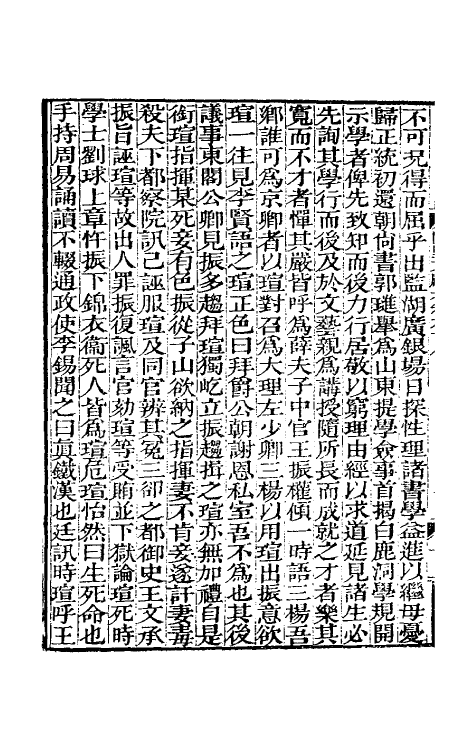 不可況得而屈乎出監湖廣銀場日探性理諸書學益進以繼母憂
歸正統初還朝尙書郭璡舉爲山東提學僉事首揭白鹿洞學規開
示學者俾先致知而後力行居敬以窮理由經以求道延見諸生必
先詢其學行而後及於文藝親爲講授隨所長而成就之才者樂其
寬而不才者憚其嚴皆呼爲薛夫子中官王振權傾一時語三楊吾
鄕誰可爲京卿者以瑄對召爲大理左少卿三楊以用瑄出振意欲
瑄一往見李賢語之瑄正色曰拜爵公朝謝恩私室吾不爲也其後
議事東閣公卿見振多趨拜瑄獨屹立振趨揖之瑄亦無加禮自是
銜瑄指揮某死妾有色振從子山欲納之指揮妻不肯妾遂訐妻毒
殺夫下都察院訊已誣服瑄及同官辨其冤三卻之都御史王文承
振旨誣瑄等故出人罪振復諷言官劾瑄等受賄並下獄論瑄死時
學士劉球上章忤振下錦衣衞死人皆爲瑄危瑄怡然曰生死命也
手持周易誦讀不輟通政使李錫聞之曰眞鐵漢也廷訊時瑄呼王